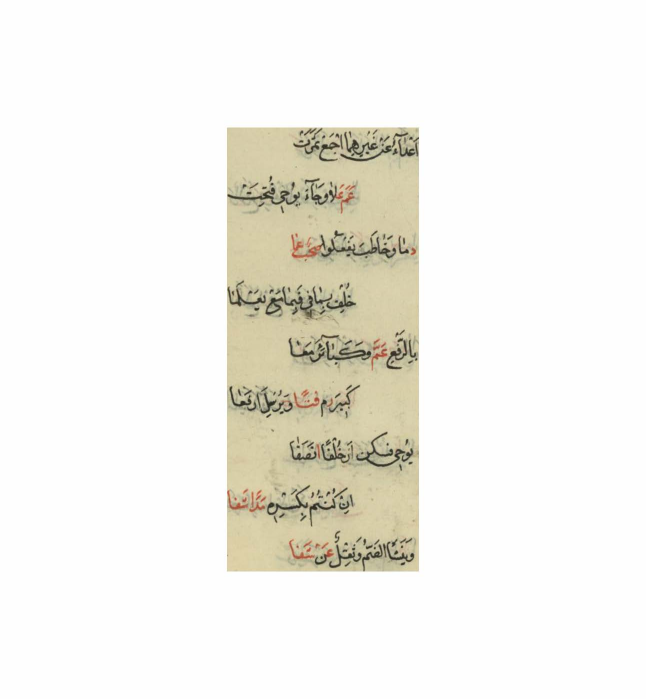 اَعْدَآءُ عَنْ غَيْرِهِمَا اجْمَعْ ثَمَرَتْ
عَمَّ عَلَا وَجَآءَ يُوحٰى فُتِحَتْ
دِمَا وَخَاطَبَ يَفْعَلُوا صَحْبٌ عَمَا
خُلْفٍ بِمَا فِى فَبِمَا مَعْ يَعْلَمَا
بِالرَّفْعِ عَمَّ وَكَبَآئِرَ مَعَا
كَبِيْرَ رُمْ فَتًا وَيُرْسِلَ ارْفَعَا
يُوحِىَ فَسَكِّنْ اَنْصَفَا
اِنْ كُنْتُمْ بِكَسْرِهٖ مَدًا شَفَا
وَيَنْشَأُ الضَّمُّ وَثِقْلٌ عَنْ شَفَا